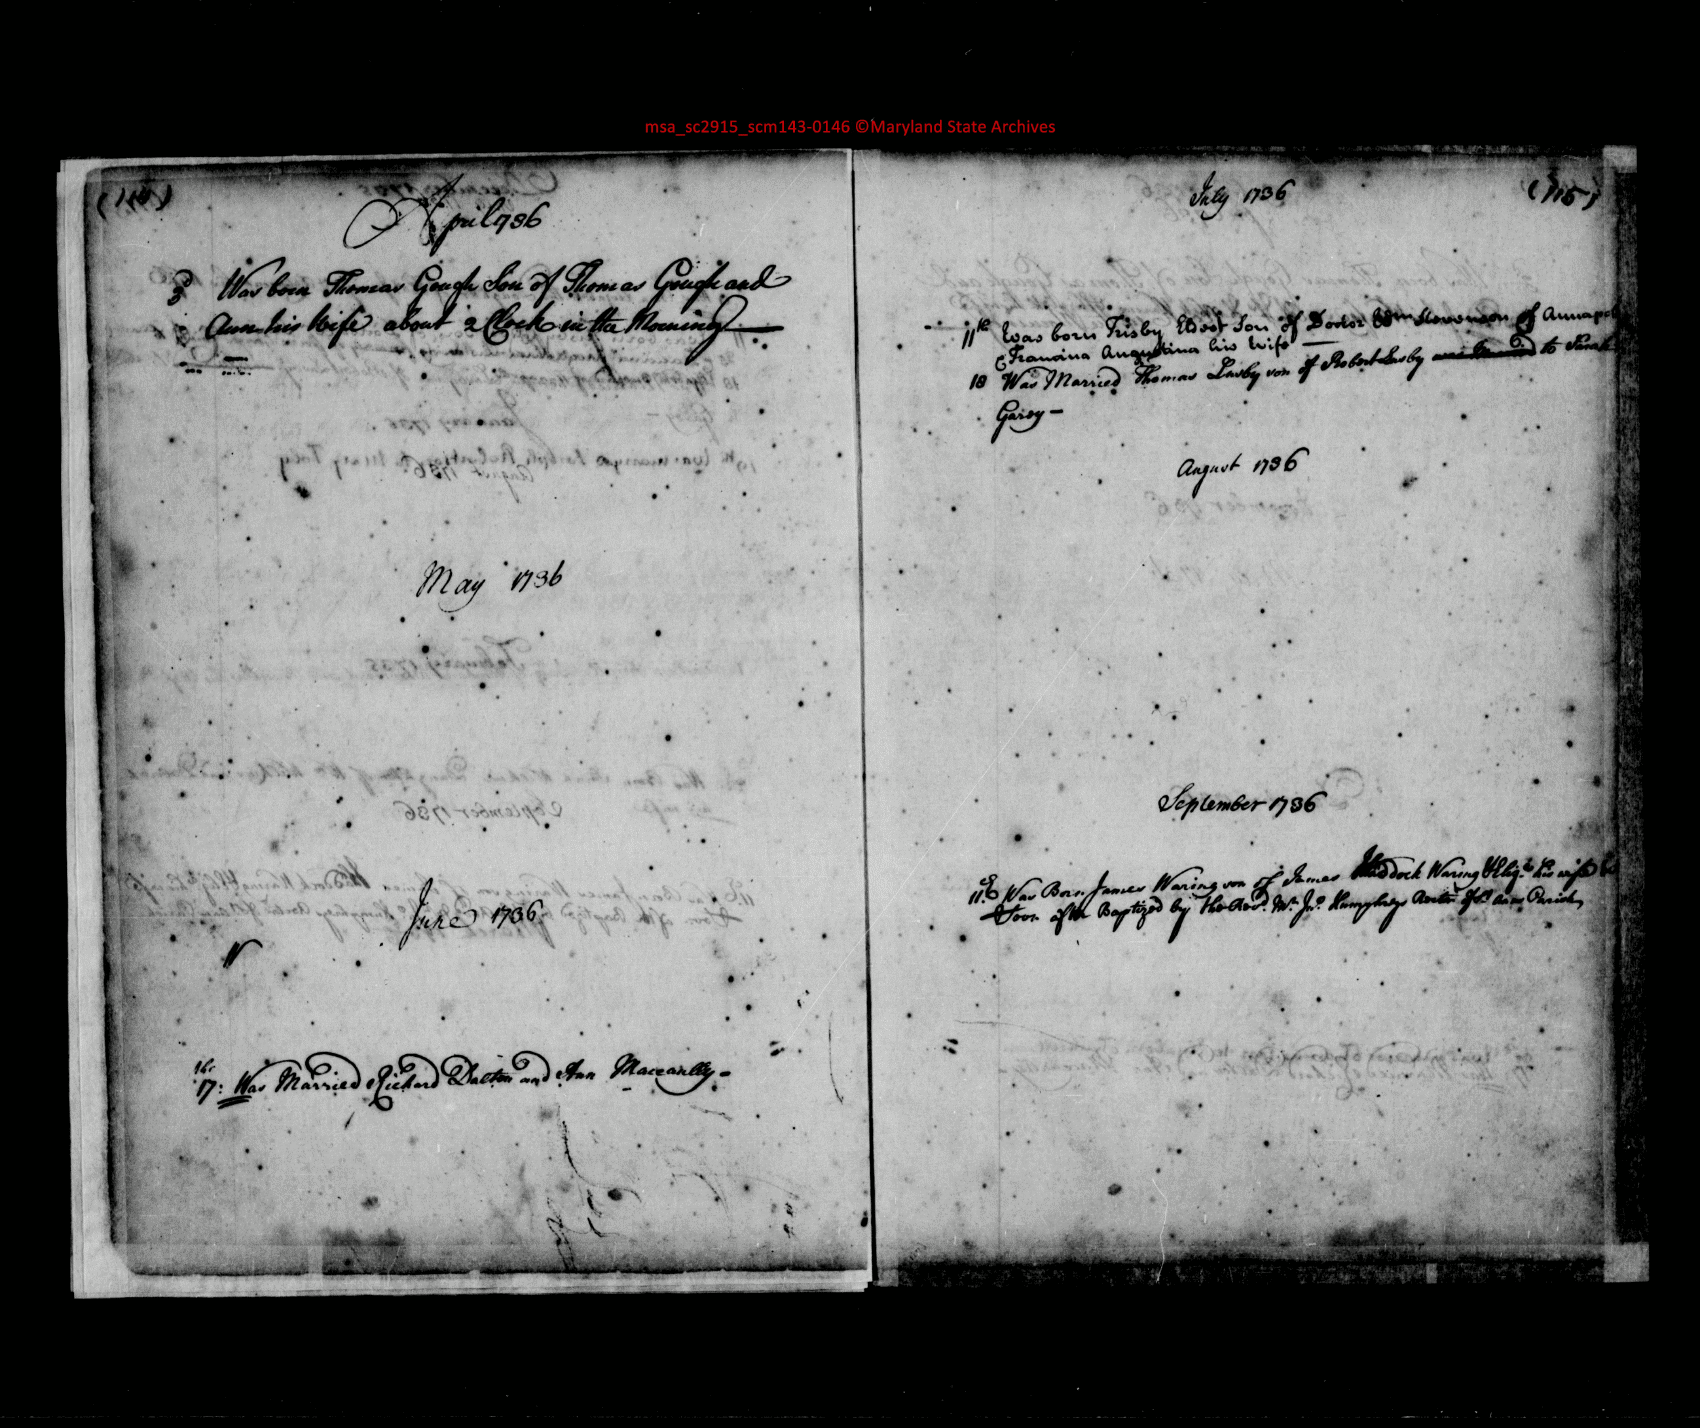 msa_sc2915_scm143-0146 ©Maryland State Archives
(114)
April 1736
3d Was born Thomas Gough Son of Thomas Gough and
Ann his Wife about 2 Clock in the Morning
May 1736
June 1736
17th: Was Married Richard Dalton and Ann Maccanlly
(115)
July 1736
11th Was born Frisby Eldest Son of Doctor Wm Stevenson of Annapol
& Francina Augustina his Wife
18 Was Married Thomas Lusby son of Robert Lusby to Sarah
Garey
August 1736
September 1736
11th Was Born James Waring son of James Haddock Waring & Eliz. his wife
Soon after Baptized by the Revd. Mr. Jno. Humphreys Rector of St. Anns Parish